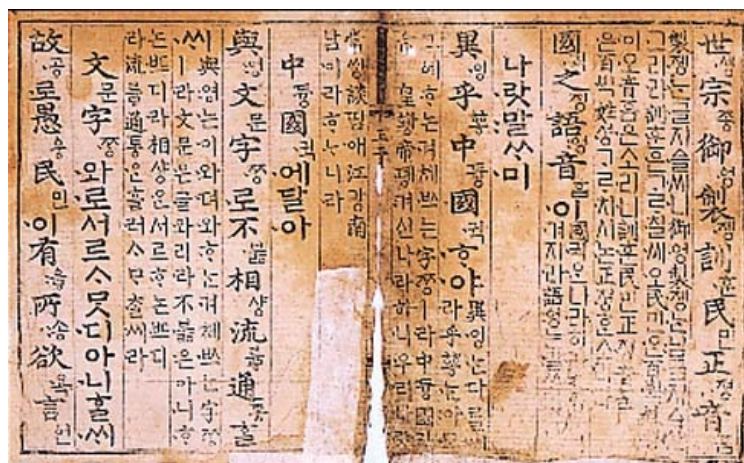 世솅宗종御엉製졩訓훈民민正졍音흠
製졩는글지ᅀᅳᆯ씨니御엉製졩는님금지ᅀᅳ샨
그리라訓훈은ᄀᆞᄅᆞ칠씨오民민은百ᄇᆡᆨ姓셩이
오音흠은소리니訓훈民민正졍音흠
은百ᄇᆡᆨ姓셩ᄀᆞᄅᆞ치시논正졍ᄒᆞᆫ소리라
國귁之징語엉音흠이
나랏말ᄊᆞ미
異잉乎ᅘᅩᆼ中듕國귁ᄒᆞ야異잉ᄂᆞᆫ다ᄅᆞᆯ씨
라乎ᅘᅩᆼᄂᆞᆫ아모
그ᅌᅦᄒᆞ논겨체ᄡᅳ는字ᄍᆞᆼㅣ라中듕國귁
皇황帝뎽겨신나라히니우리나랏
常썅談땀애江강南
남이라ᄒᆞᄂᆞ니라
中듕國귁에달아
與영文문字ᄍᆞᆼ로不불相샹流륳通통ᄒᆞᆯ
ᄊᆡ與영는이와뎌와ᄒᆞ는겨체ᄡᅳ는字ᄍᆞᆼ
ㅣ라文문은글와리라不불은아니ᄒᆞ
논ᄠᅳ디라相샹ᄋᆞᆫ서르ᄒᆞ논ᄠᅳ디
라流륳通통은흘러ᄉᆞᄆᆞᄎᆞᆯ씨라
文문字ᄍᆞᆼ와로서르ᄉᆞᄆᆞᆺ디아니ᄒᆞᆯᄊᆡ
故공로愚웅民민이有ᅌᅮᇢ所송欲욕言언